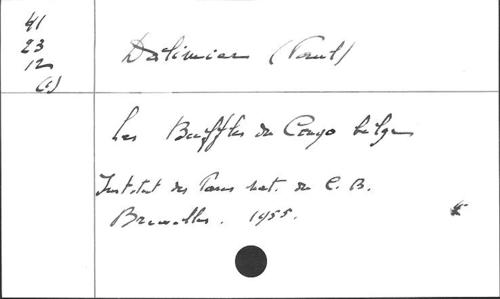 41
23
12
(1)
Dalimier (Paul)
Les Buffles du Congo belge
Institut des Parcs nat. du C. B.
Bruxelles. 1955.